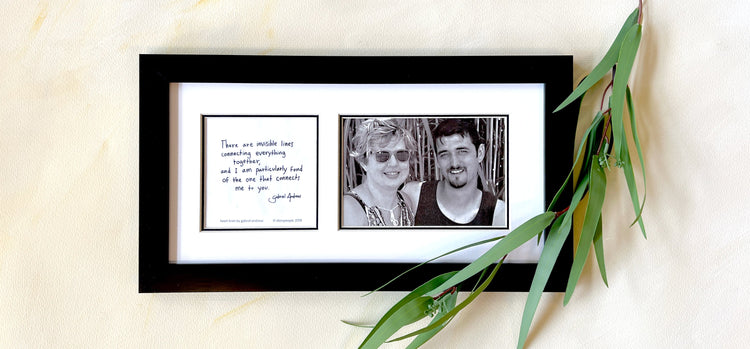 There are invisible lines
connecting everything
together,
and I am particularly fond
of the one that connects
me to you.